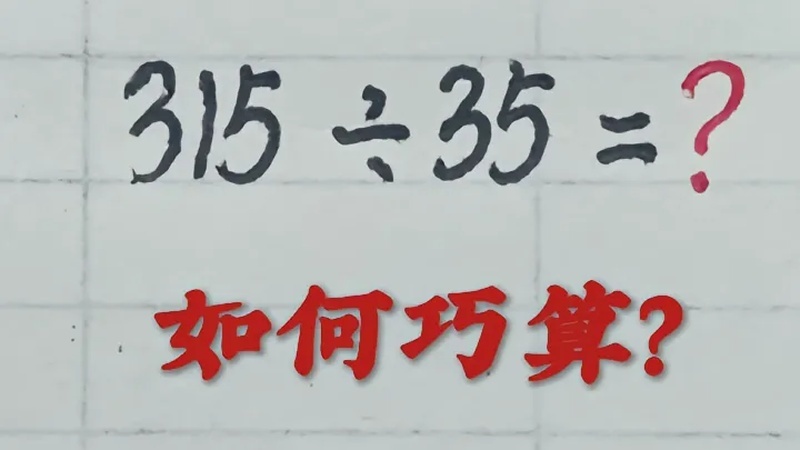 315÷35=?
如何巧算?